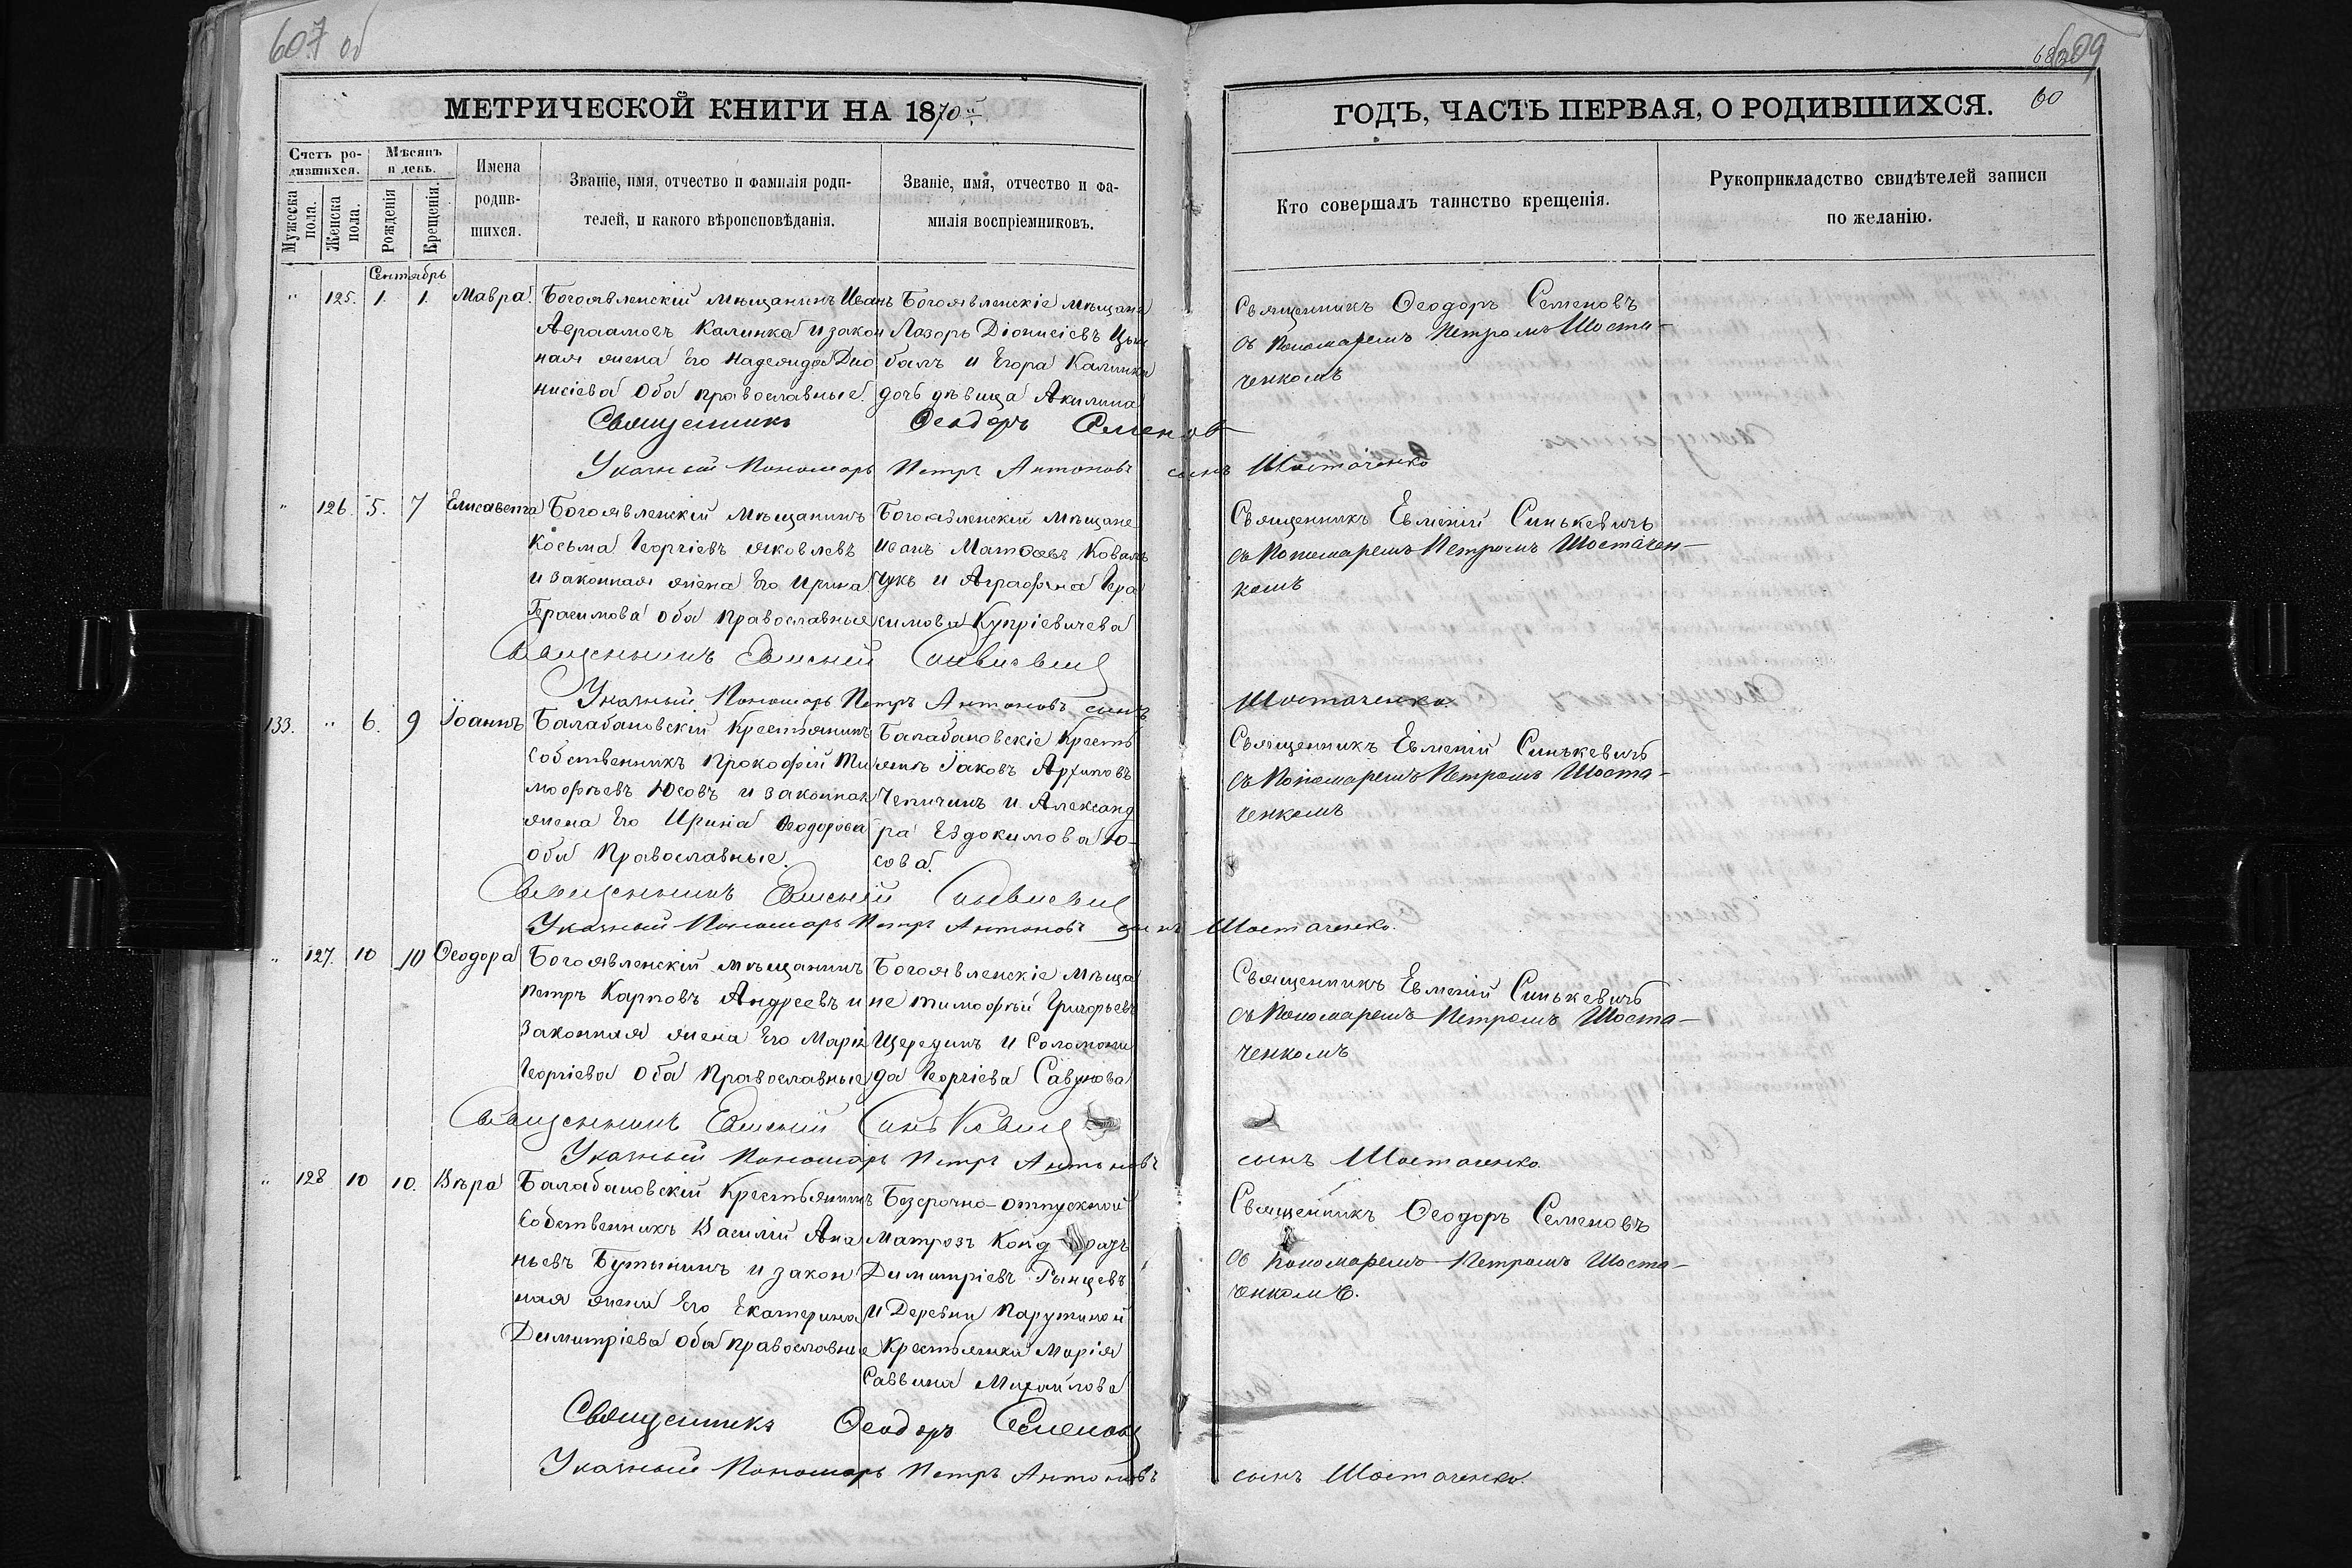 607 об
МЕТРИЧЕСКОЙ КНИГИ НА 1870й
Счетъ родившихся.
Мужеска пола.
Женска пола.
Мѣсяцъ и день.
Рожденія
Крещенія.
Имена родившихся.
Званіе, имя, отчество и фамилія роди-
телей, и какого вѣроисповѣданія.
Званіе, имя, отчество и фа-
милія воспріемниковъ.
Сентябрь
" 125. 1. 1. Мавра.
Богоявленскій мѣщанинъ Иванъ
Авраамовъ Калинка и закон
ная жена его Надежда Дио
нисіева оба православные.
Богоявленскіе мѣщане
Лазорь Діонисіевъ Цым
балъ и Егора Калинки
дочь дѣвица Акилина
Священникъ Ѳеодоръ Семеновъ
Указный Пономарь Петръ Антоновъ сынъ Шостаченко
" 126. 5. 7 Елисавета
Богоявленскій мѣщанинъ
Косьма Георгіевъ Яковлевъ
и законная жена его Ирина
Герасимова оба православные
Богоявленскіе мѣщане
Иванъ Матѳеевъ Коваль
чукъ и Аграфена Гера
симова Купріевичева
Священникъ Евменій Синькевичъ
Указный Пономарь Петръ Антоновъ сынъ Шостаченко
133. " 6. 9 Іоаннъ
Балабановскій крестьянинъ
собственникъ Прокофій Ти
мофѣевъ Юсовъ и законная
жена его Ирина Ѳеодорова
оба Православные.
Балабановскіе кресть
яне Іаковъ Архиповъ
Чепичинъ и Александ
ра Евдокимова Ю-
сова.
Священникъ Евменій Синькевичъ
Указный Пономарь Петръ Антоновъ сынъ Шостаченко.
" 127. 10 10 Ѳеодора
Богоявленскій мѣщанинъ
Петръ Карповъ Андреевъ и
законная жена его Марія
Георгіева оба Православные
Богоявленскіе мѣща
не Тимофѣй Григорьевъ
Щерединъ и Соломони
да Георгіева Савунова
Священникъ Евменій Синькевичъ
Указный Пономарь Петръ Антоновъ сынъ Шостаченко.
" 128 10 10. Вѣра
Балабановскій крестьянинъ
собственникъ Василій Ана
ньевъ Бутынинъ и закон
ная жена его Екатерина
Димитріева оба православные
Безсрочно-отпускной
матрозъ Конд ратъ
Димитріевъ Рынцевъ
и Деревни Парутиной
крестьянка Марія
Саввина Михайлова
Священникъ Ѳеодоръ Семеновъ
Указный Пономарь Петръ Антоновъ сынъ Шостаченко.
609
60
ГОДЪ, ЧАСТЬ ПЕРВАЯ, О РОДИВШИХСЯ.
Кто совершалъ таинство крещенія.
Рукоприкладство свидѣтелей записи
по желанію.
Священникъ Ѳеодоръ Семеновъ
съ Пономаремъ Петромъ Шоста-
ченкомъ
Священникъ Евменій Синькевичъ
съ Пономаремъ Петромъ Шостачен-
комъ
Священникъ Евменій Синькевичъ
съ Пономаремъ Петромъ Шоста-
ченкомъ
Священникъ Евменій Синькевичъ
съ Пономаремъ Петромъ Шоста-
ченкомъ
Священникъ Ѳеодоръ Семеновъ
съ Пономаремъ Петромъ Шоста-
ченкомъ.